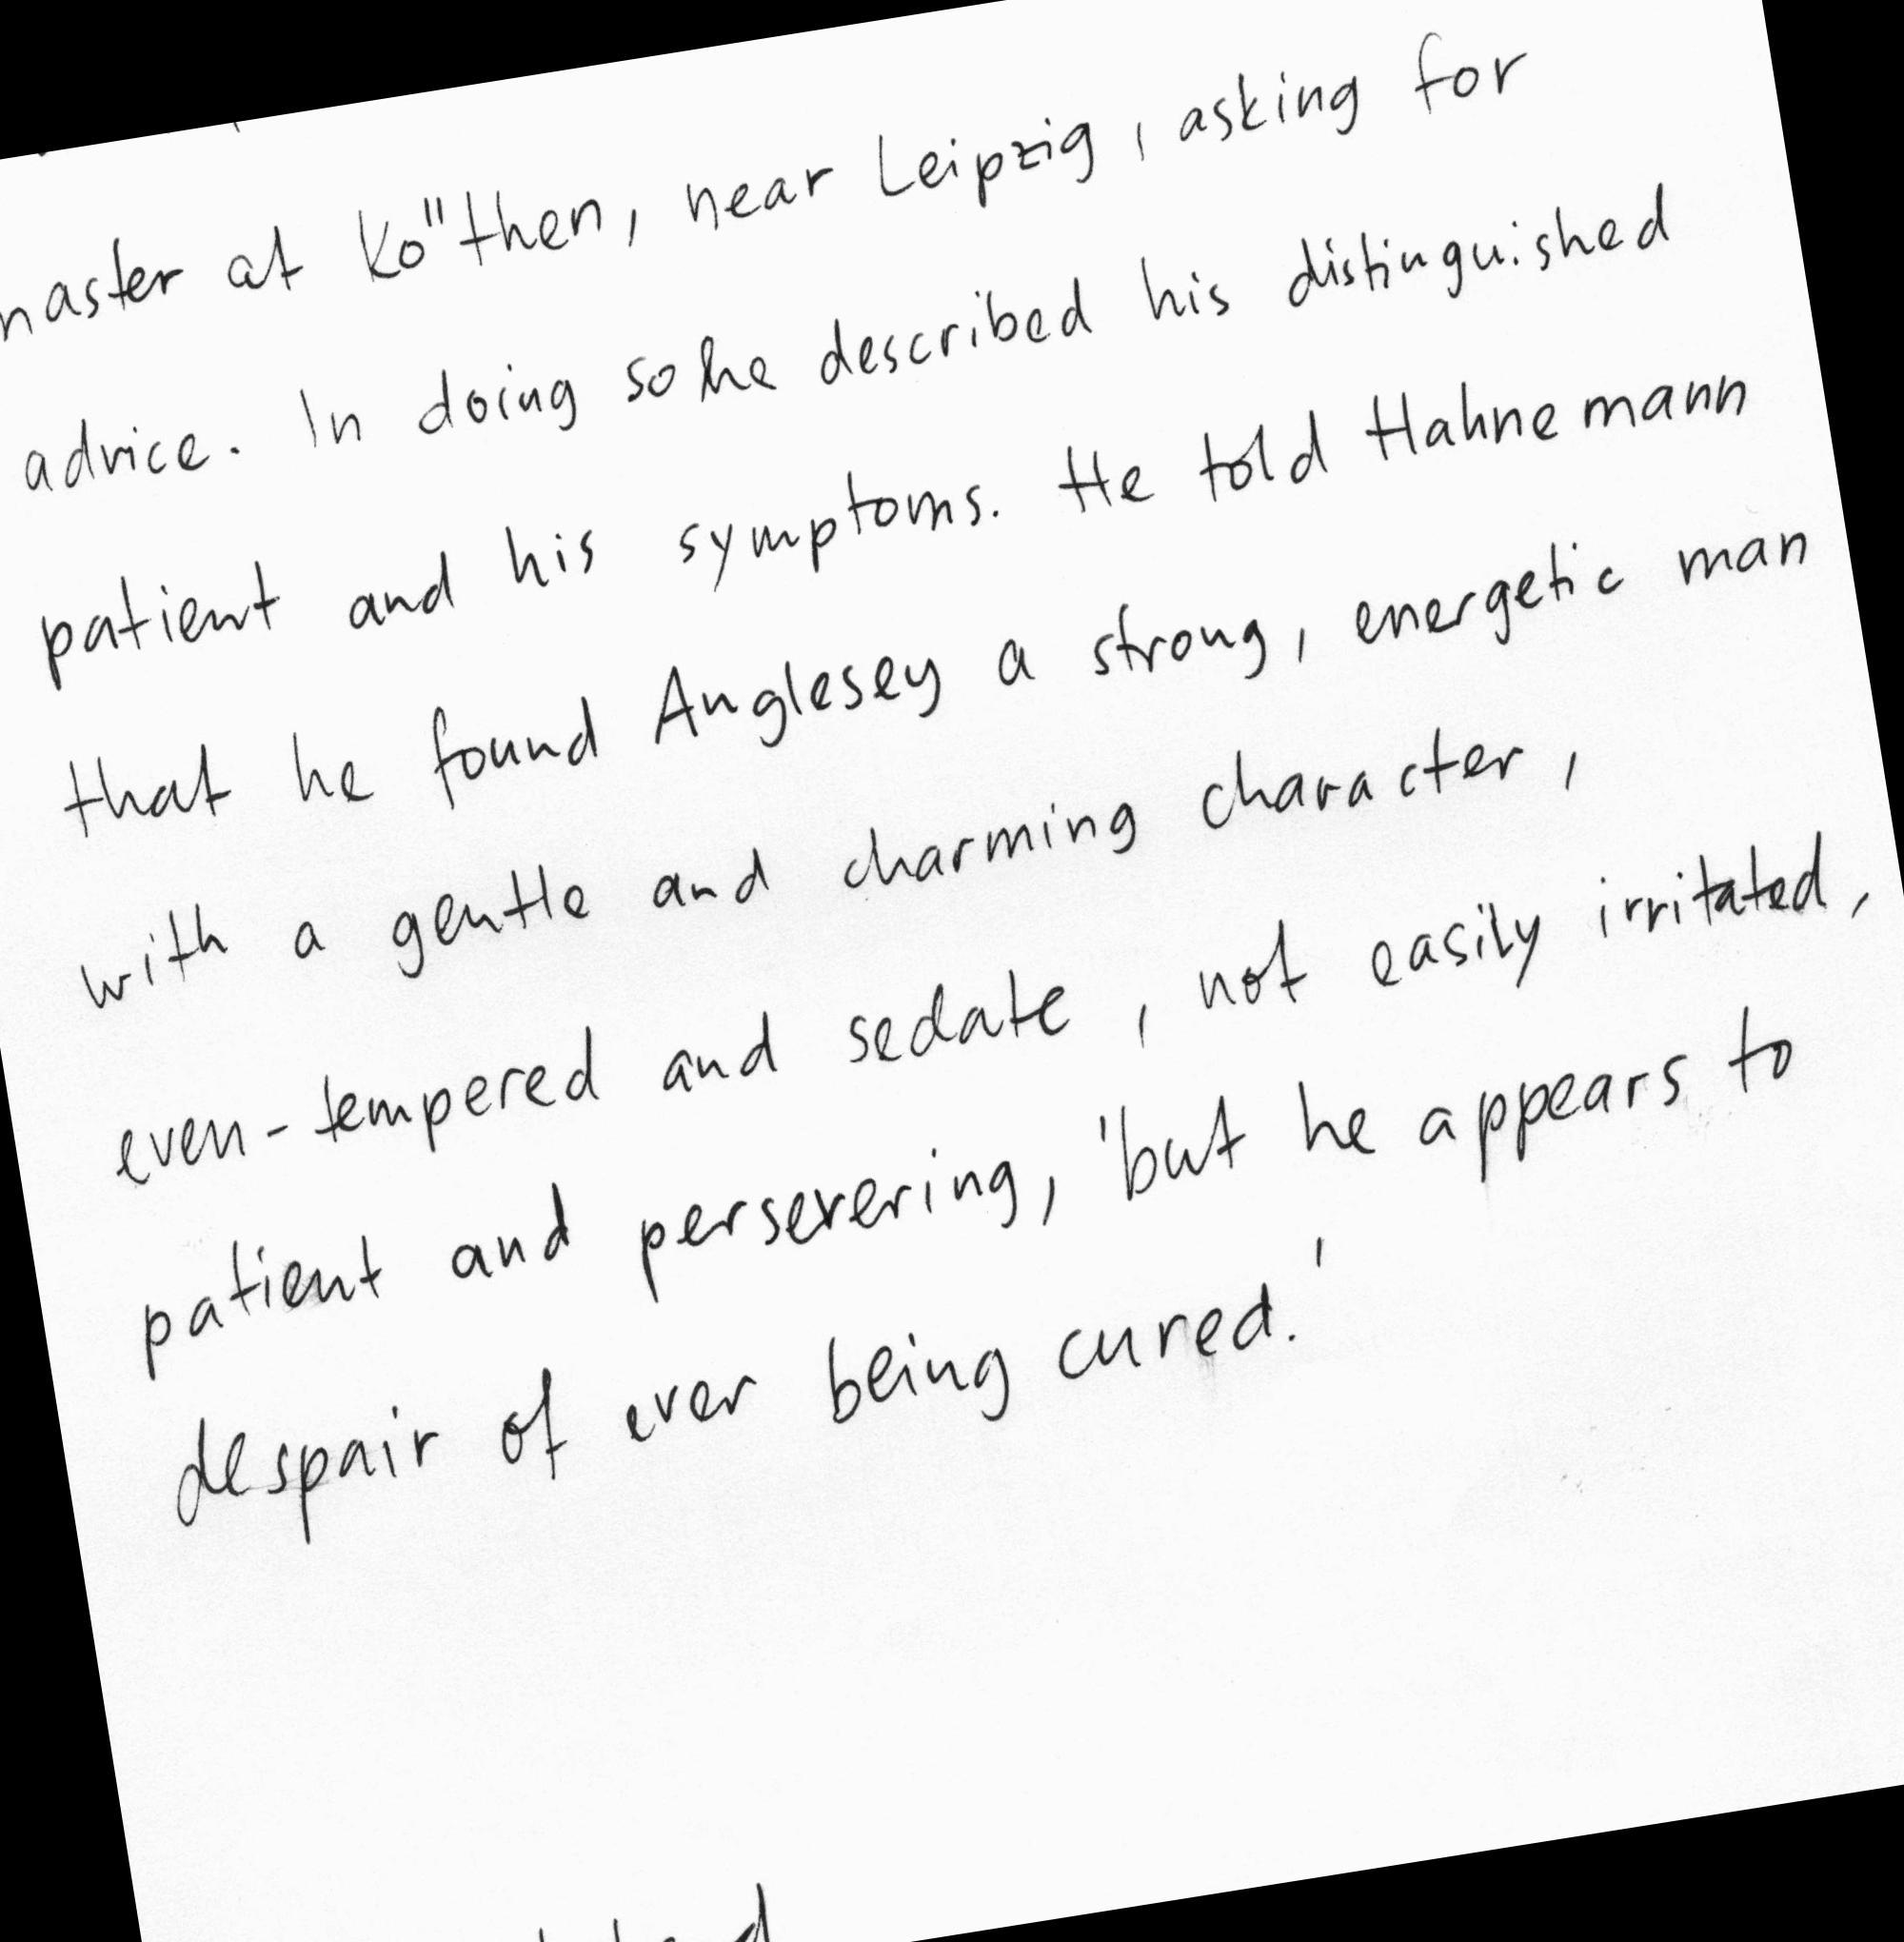 master at Ko"then, near Leipzig, asking for
advice. In doing so he described his distinguished
patient and his symptoms. He told Hahnemann
that he found Anglesey a strong, energetic man
with a gentle and charming character,
even-tempered and sedate, not easily irritated,
patient and persevering, 'but he appears to
despair of ever being cured.'